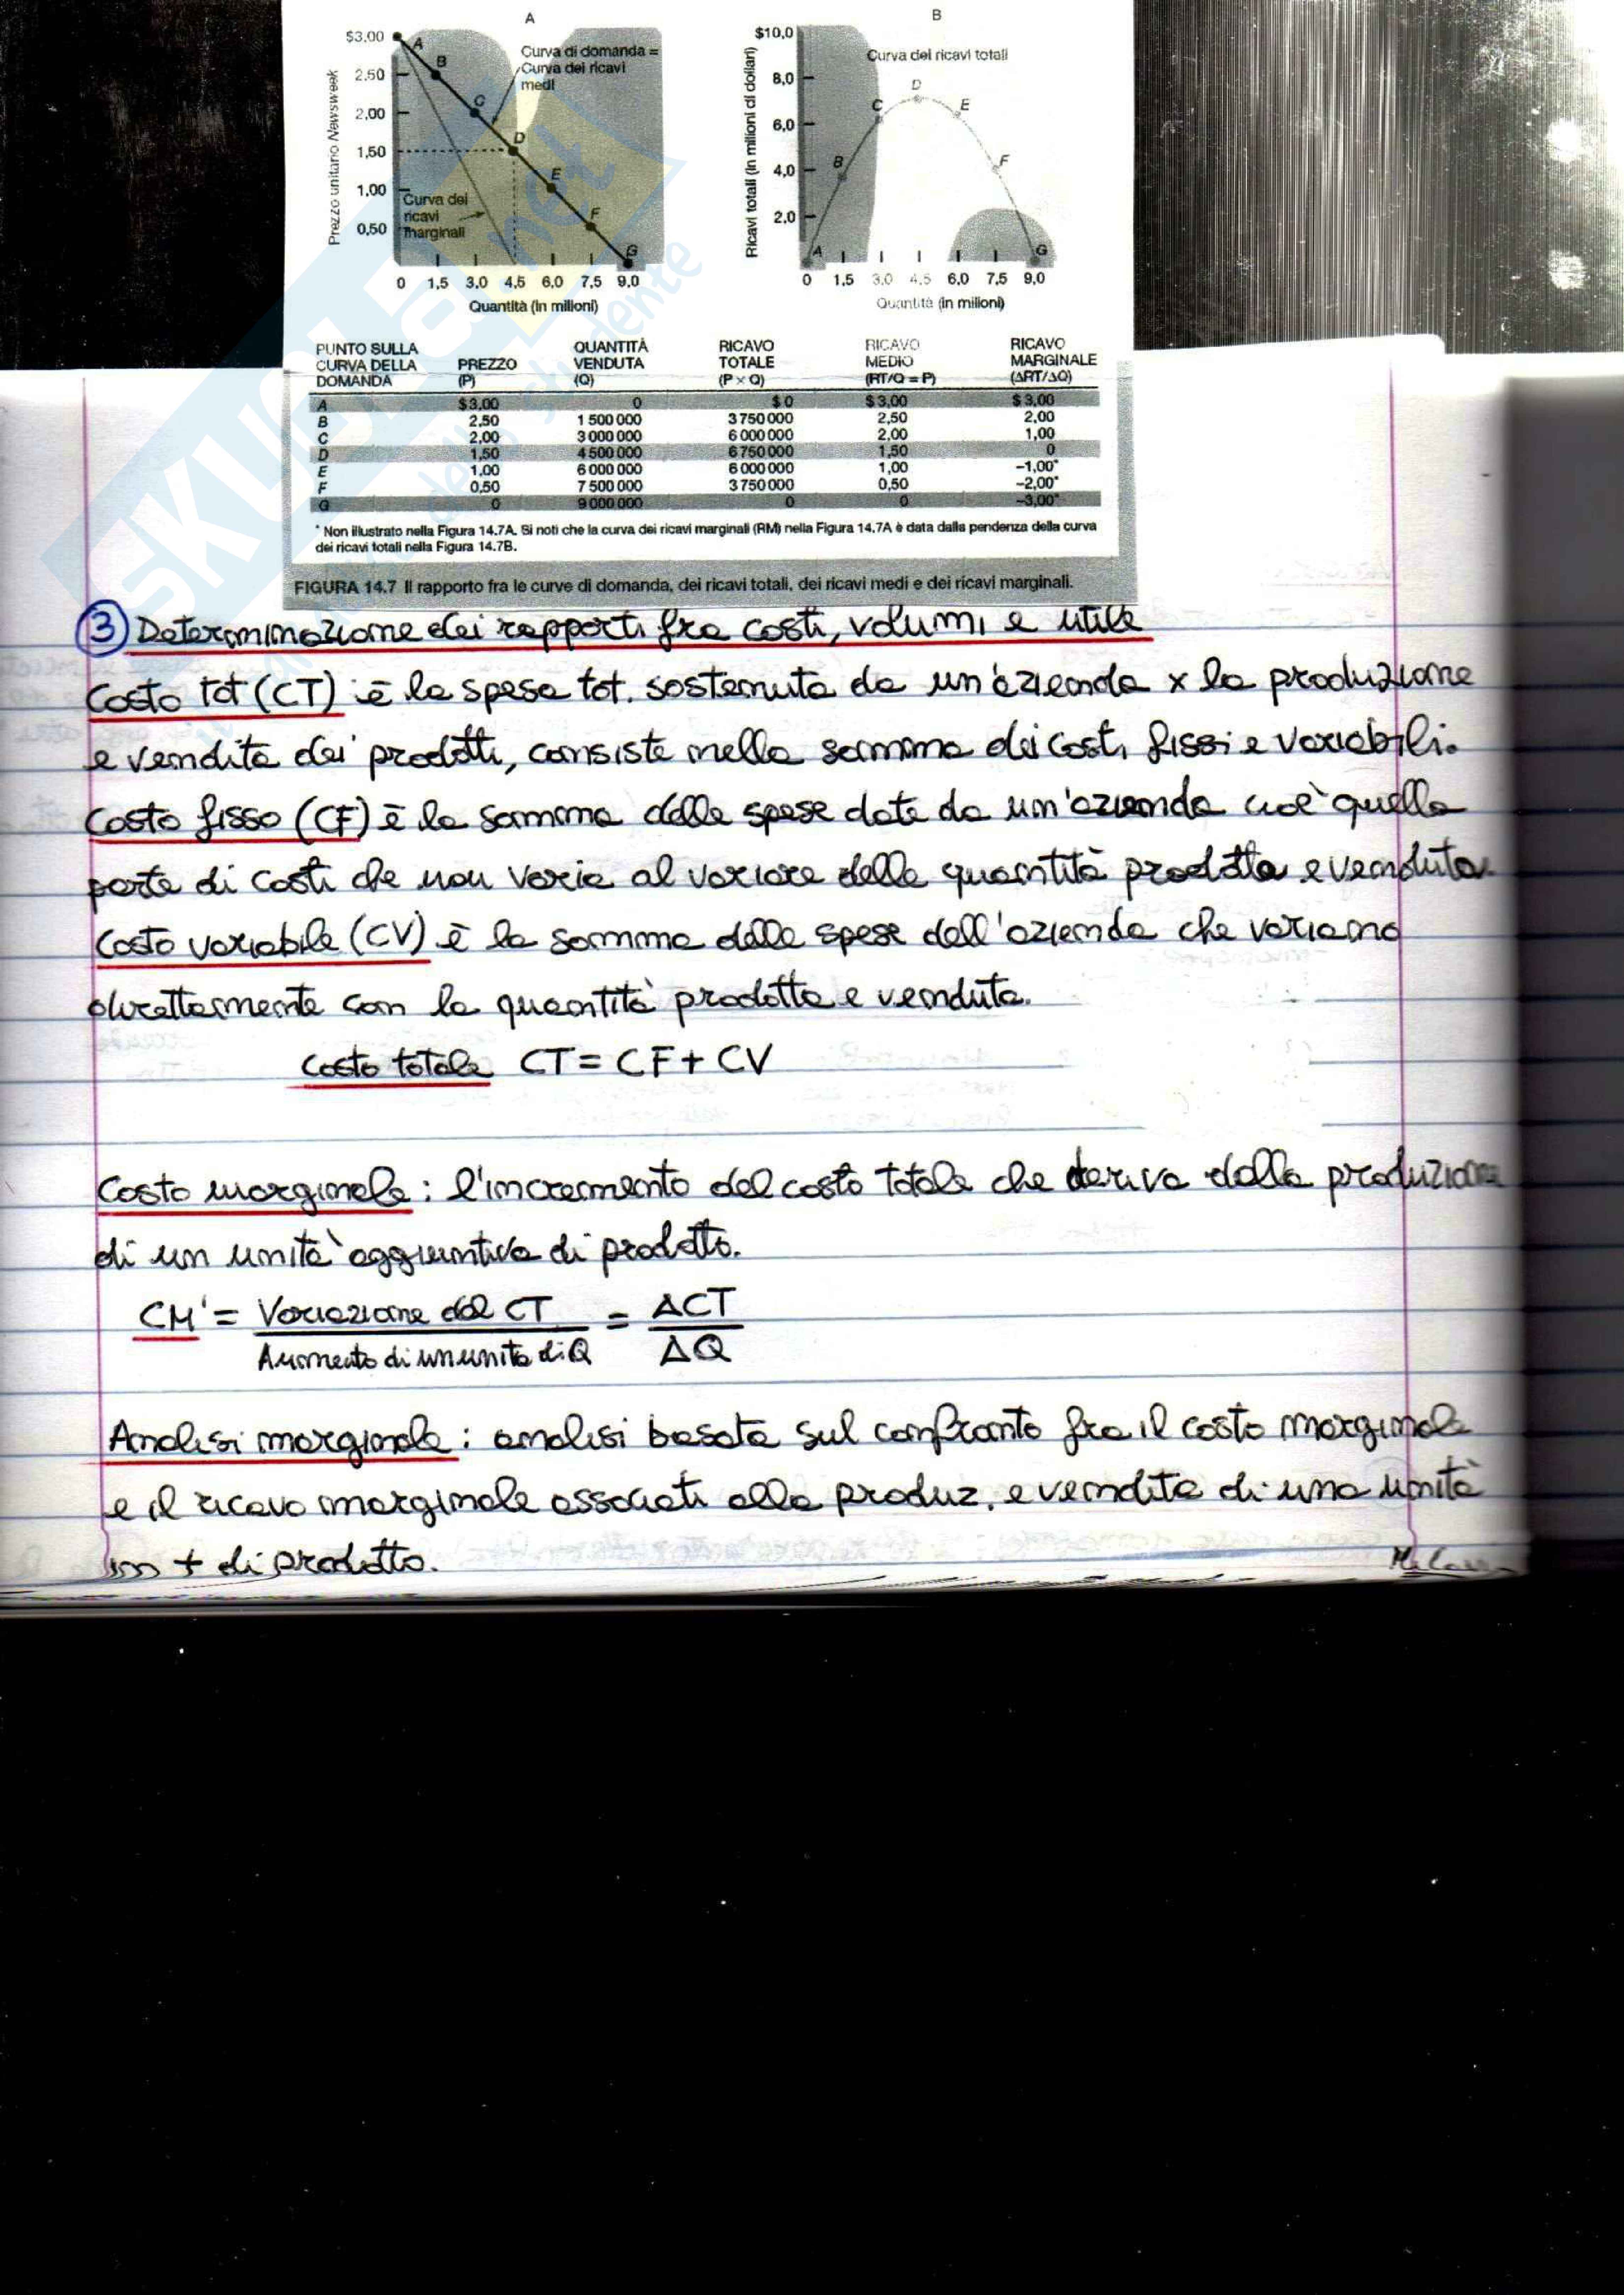 A
B
$3,00
2,50
2,00
1,50
1,00
0,50
Prezzo unitario Newsweek
Curva di domanda =
Curva dei ricavi
medi
Curva dei
ricavi
marginali
A
B
C
D
E
F
G
0 1,5 3,0 4,5 6,0 7,5 9,0
Quantità (in milioni)
$10,0
8,0
6,0
4,0
2,0
Ricavi totali (in milioni di dollari)
Curva dei ricavi totali
A
B
C
D
E
F
G
0 1,5 3,0 4,5 6,0 7,5 9,0
Quantità (in milioni)
PUNTO SULLA CURVA DELLA DOMANDA PREZZO (P) QUANTITÀ VENDUTA (Q) RICAVO TOTALE (P x Q) RICAVO MEDIO (RT/Q = P) RICAVO MARGINALE (ΔRT/ΔQ)
A $3,00 0 $0 $3,00 $3,00
B 2,50 1 500 000 3 750 000 2,50 2,00
C 2,00 3 000 000 6 000 000 2,00 1,00
D 1,50 4 500 000 6 750 000 1,50 0
E 1,00 6 000 000 6 000 000 1,00 –1,00*
F 0,50 7 500 000 3 750 000 0,50 –2,00*
G 0 9 000 000 0 0 –3,00*
* Non illustrato nella Figura 14.7A. Si noti che la curva dei ricavi marginali (RM) nella Figura 14.7A è data dalla pendenza della curva
dei ricavi totali nella Figura 14.7B.
FIGURA 14.7 Il rapporto fra le curve di domanda, dei ricavi totali, dei ricavi medi e dei ricavi marginali.
3 Determinazione dei rapporti fra costi, volumi e utile
Costo tot (CT) è la spesa tot. sostenuta da un'azienda x la produzione
e vendita dei prodotti, consiste nella somma dei costi fissi e variabili.
Costo fisso (CF) è la somma delle spese date da un'azienda cioè quella
parte di costi che non varia al variare della quantità prodotta e venduta.
Costo variabile (CV) è la somma delle spese dell'azienda che variano
direttamente con la quantità prodotta e venduta.
Costo totale CT = CF + CV
Costo marginale : l'incremento del costo totale che deriva dalla produzione
di un unità aggiuntiva di prodotto.
CM' = Variazione del CT / Aumento di un unità di Q = ΔCT / ΔQ
Analisi marginale : analisi basata sul confronto fra il costo marginale
e il ricavo marginale associati alla produz. e vendita di una unità
in + di prodotto.
SKUOLA.net
dello studente